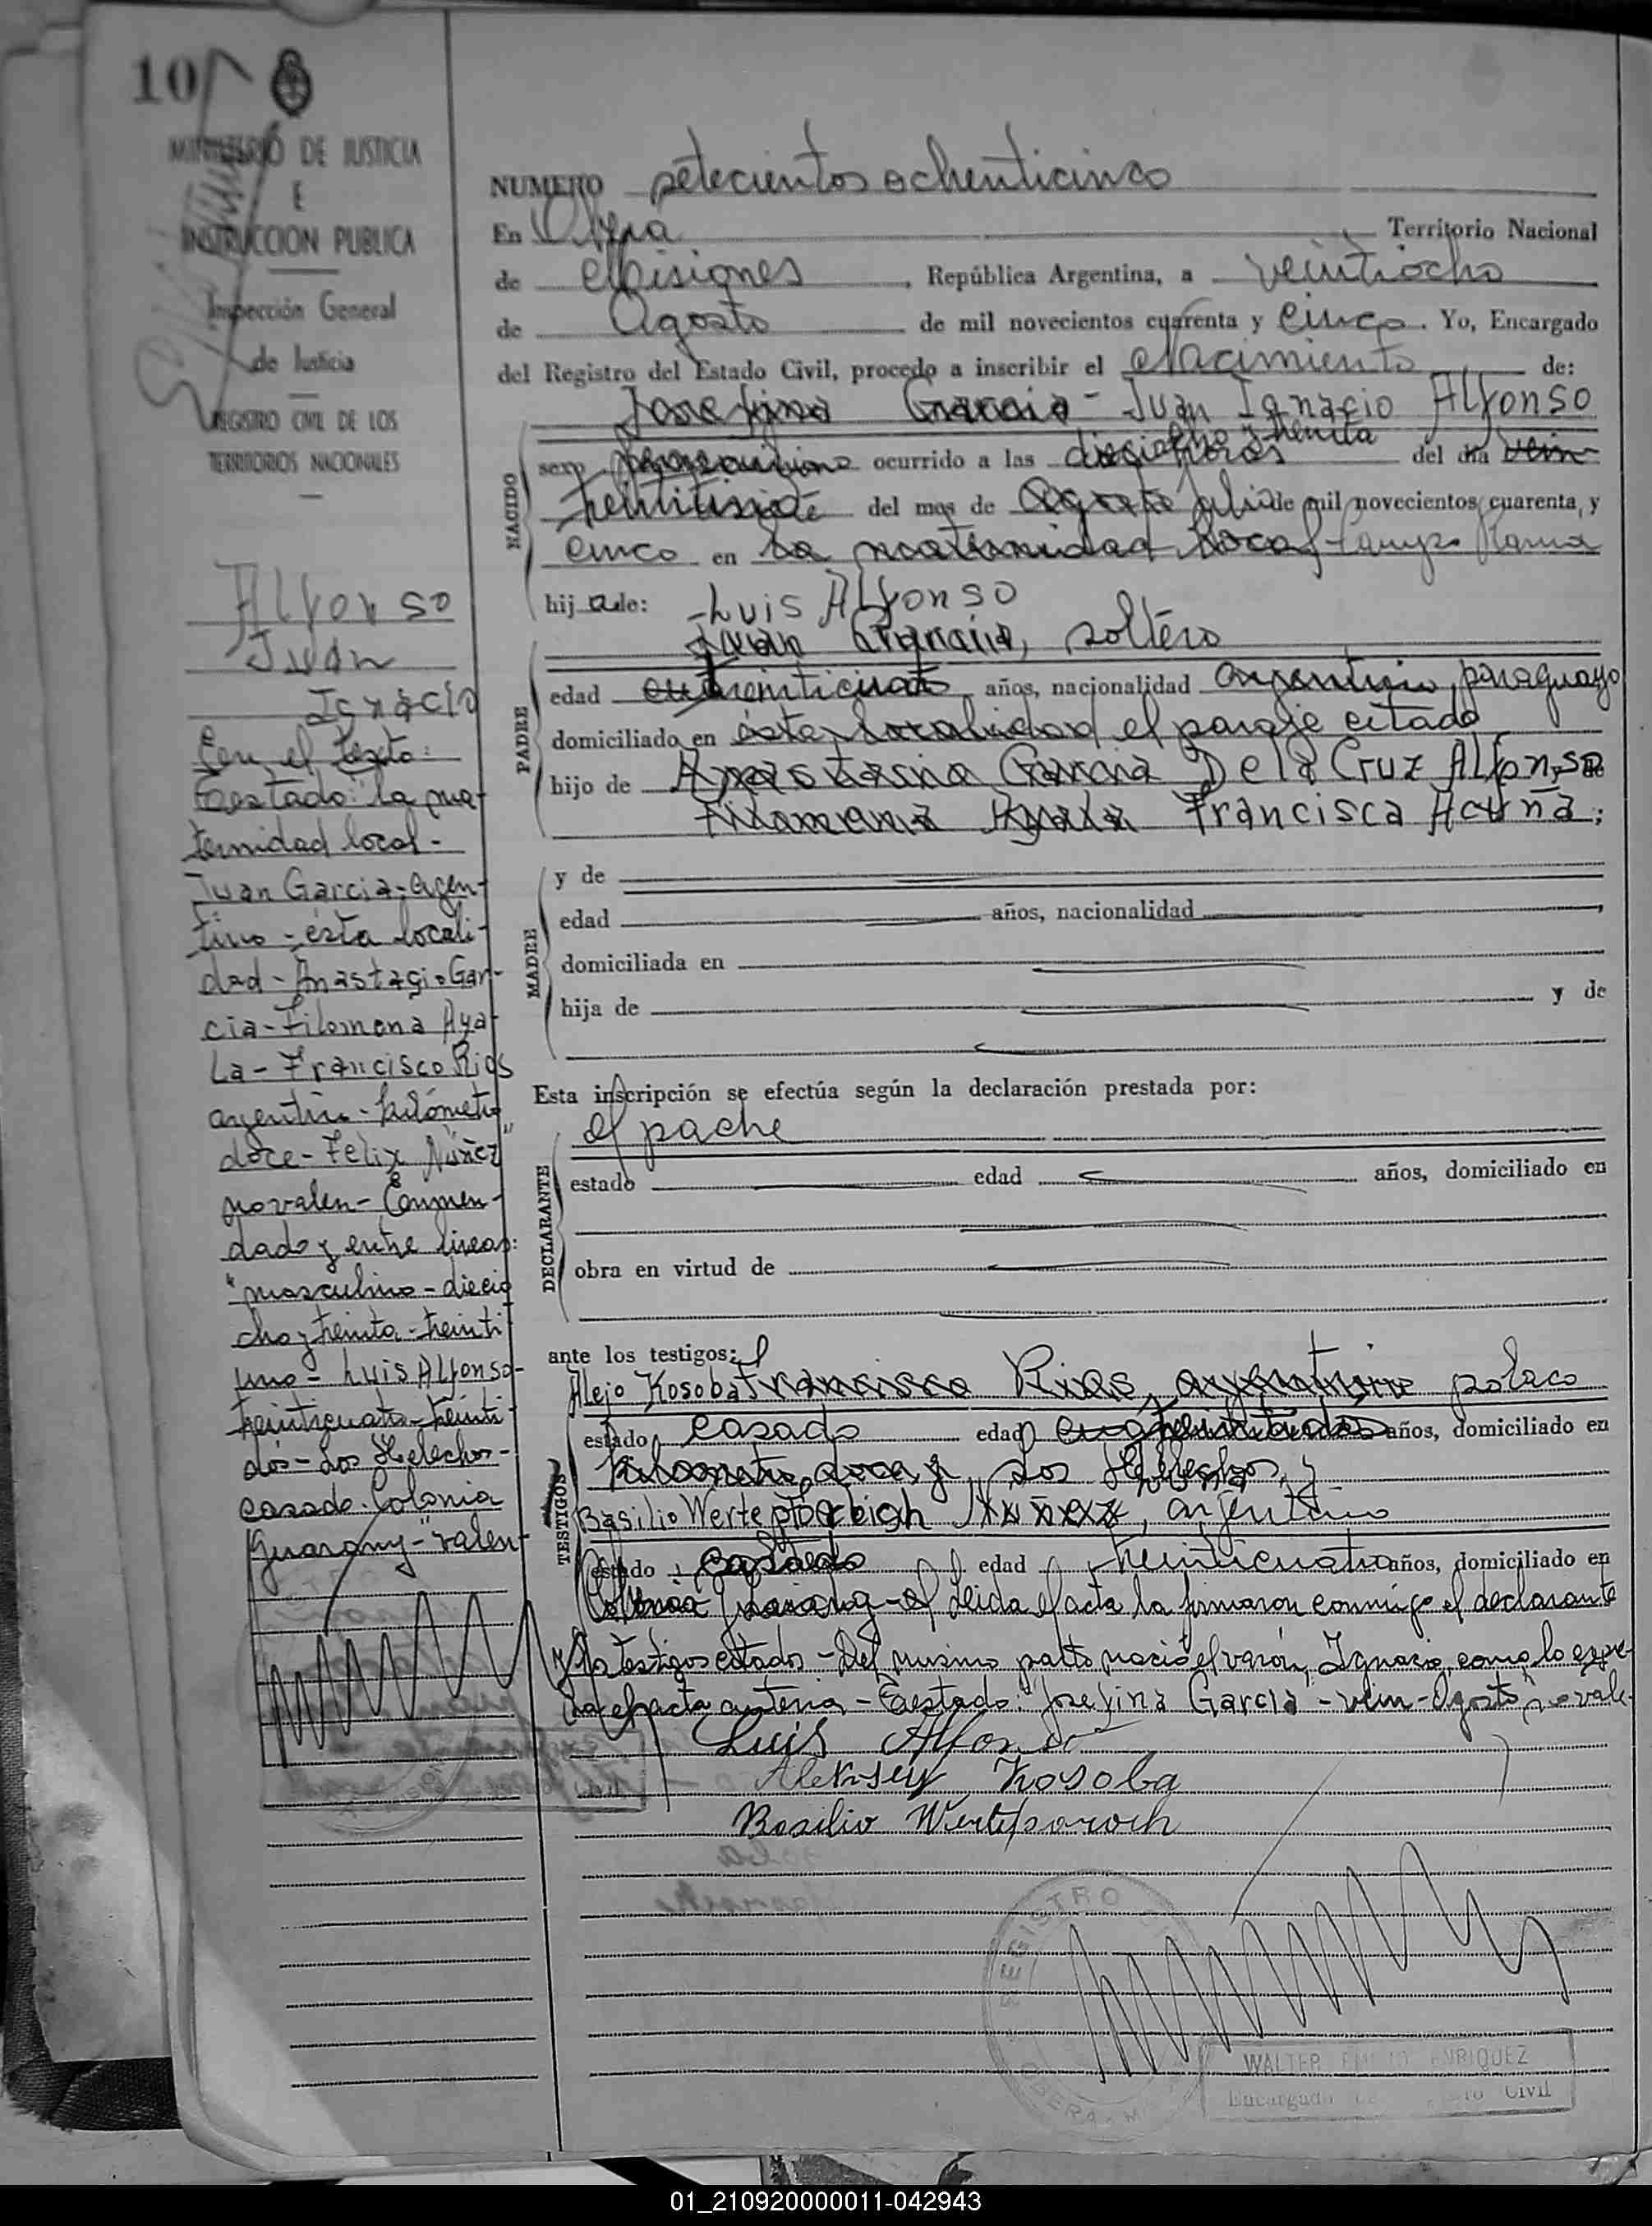 10
MINISTERIO DE JUSTICIA
E
INSTRUCCION PUBLICA
Inspección General
de Justicia
REGISTRO CIVIL DE LOS
TERRITORIOS NACIONALES
Alfonso
Juan
Ignacio
En el texto:
Testado: "la ma-
ternidad local -
Juan Garcia - argen-
tino - ésta locali-
dad - Anastacio Gar-
cia - Filomena Aya-
la - Francisco Rios
argentino - kilómetro
doce - Felix Nuñez"
no valen - Enmen-
dado y entre líneas:
"masculino - diecio
cho y treinta - treinti
uno - Luis Alfonso -
treinticuatro - treinti
dós - Los Helechos -
casado - Colonia
Guarany" - valen -
NUMERO setecientos ochenticinco
En Oberá Territorio Nacional
de Misiones, República Argentina, a veintiocho
de Agosto de mil novecientos cuarenta y cinco. Yo, Encargado
del Registro del Estado Civil, procedo a inscribir el Nacimiento de:
Josefina Garcia - Juan Ignacio Alfonso
NACIDO
sexo masculino ocurrido a las dieciocho y treinta horas del día vein
del mes de Agosto julio de mil novecientos cuarenta y
cinco en la maternidad local - campo
hij de:
Luis Alfonso
PADRE
Juan Garcia, soltero
edad treinticuatro años, nacionalidad argentino, paraguayo
domiciliado en ésta localidad el paraje citado
hijo de Anastacio Garcia De la Cruz Alfonso y de
Filomena Ayala Francisca Acuña;
MADRE
y de
edad años, nacionalidad
domiciliada en
hija de y de
Esta inscripción se efectúa según la declaración prestada por:
DECLARANTE
el padre
estado edad años, domiciliado en
obra en virtud de
ante los testigos:
TESTIGOS
Alejo Kosoba Francisco Rios, argentino polaco
estado casado edad años, domiciliado en
kilometro doce y Los Helechos, y
Basilio Nuñez, argentino
estado casado edad treinticuatro años, domiciliado en
Colonia Guarany - leida el acta la firmaron conmigo el declarante
y los testigos citados - Del mismo parto nació el varón, Ignacio, como lo expre-
sa el acta anterior - Testado: "Josefina Garcia" - vein - Agosto, no vale
Luis Alfonso
Aleksey Kosoba
Basilio
REGISTRO
OBERA - M
WALTER EMILIO ENRIQUEZ
Encargado Civil
01_210920000011-042943